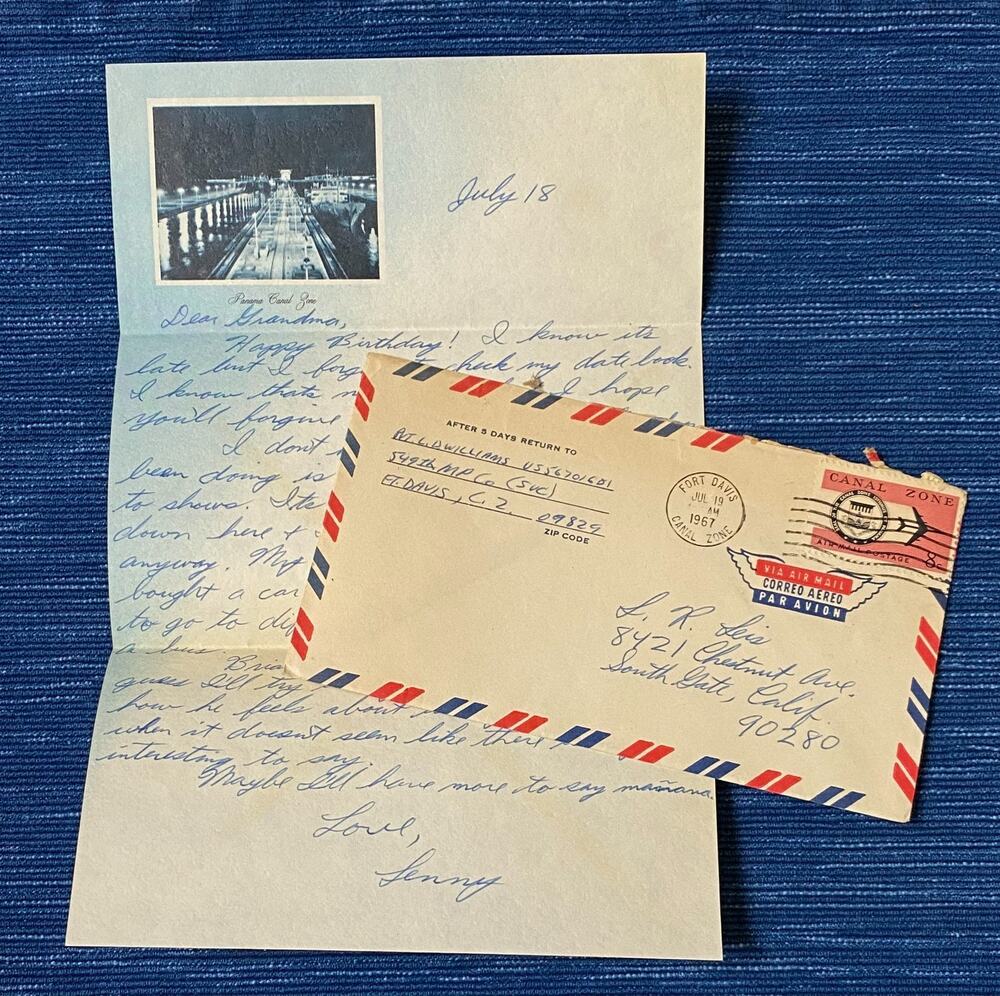 July 18
Panama Canal Zone
Dear Grandma,
Happy Birthday! I know its
late but I forg heck my date book.
I know thats I hope
you'll forgive
I don't
been doing is
to shows. Its
down here +
anyway. My
bought a car
to go to
a bus.
guess I'll try
how he feels about
when it doesnt seem like there
interesting to say.
Maybe I'll have more to say mañana.
Love,
Lenny
AFTER 5 DAYS RETURN TO
PVT. L.D WILLIAMS US56701601
549th MP Co (SVC)
FT. DAVIS, C.Z. 09829
ZIP CODE
FORT DAVIS
JUL 19
AM
1967
CANAL ZONE
CANAL ZONE
AIR MAIL POSTAGE 8c
VIA AIR MAIL
CORREO AEREO
PAR AVION
L. R. Leis
8421 Chestnut Ave.
South Gate Calif.
90280